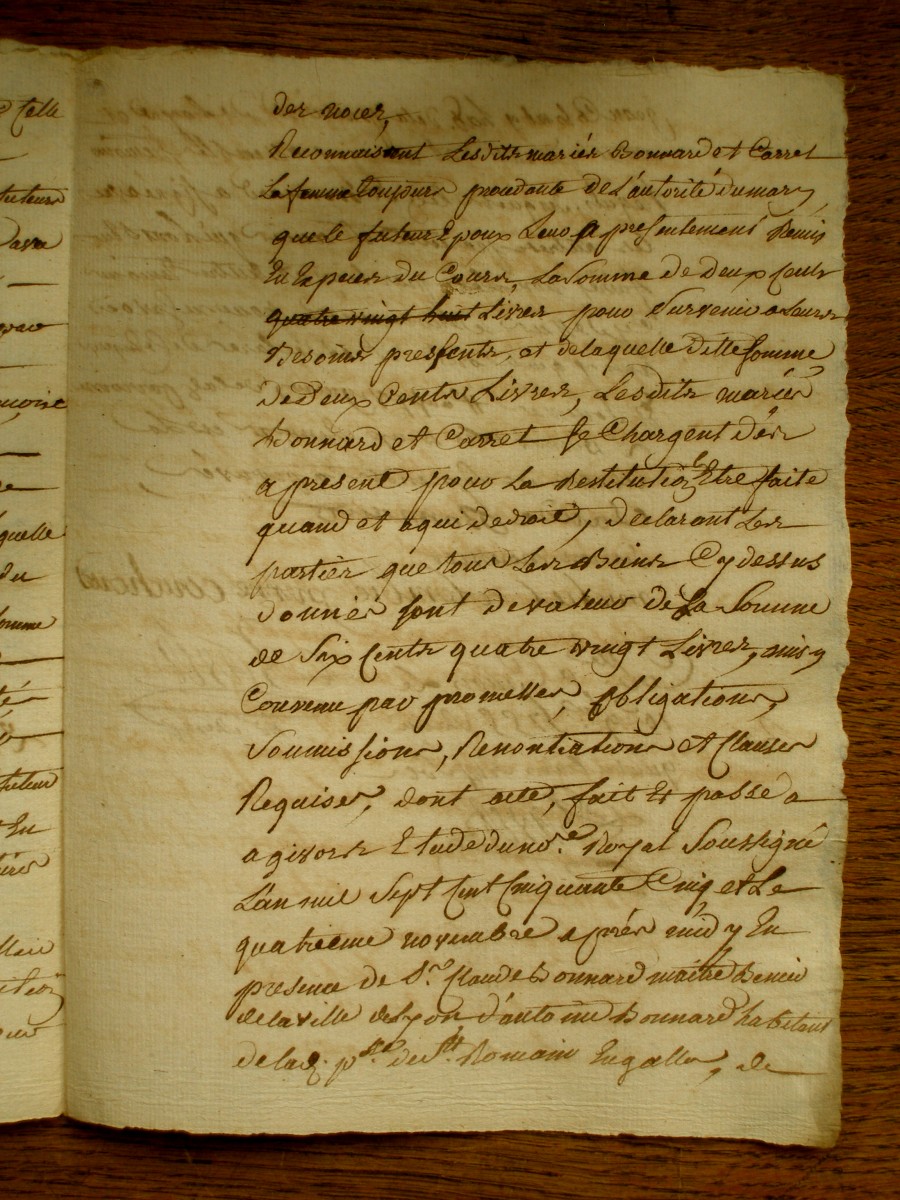 des noces,
Reconnaissent Lesdits mariés Bonnard et Carret
La femme toujours procedante de L'autorité du mary
que le futur Epoux Leur a presentement Remis
En Especes du Cours, La Somme de Deux Cents
quatre vingt huit Livres pour Survenir a Leurs
Besoins pressents, et de laquelle ditte somme
de Deux Cents Livres, Lesdits mariés
Bonnard et Carret se Chargent dés
a present pour La Restitution en Etre faite
quand et a qui de droit, declarant Les
parties que tous Les Biens Cy dessus
donnés sont de valeur de La Somme
de Six Cents quatre vingt Livres, ainsy
Convenu par promesses, obligations,
Soumissions, Renontiations et Clauses
Requises, dont acte, fait Et passé a
a givors Etude du no.re Royal Soussigné
L'an mil Sept Cent Cinquante Cinq et Le
quatrieme novembre aprés midy En
presence de S.r Claude Bonnard maitre
de la ville de Lyon d'antoine Bonnard habitant
de lad. p.sse de S.t Romain Engalles, de
Celle
futeurs
quelle
du
omme
En